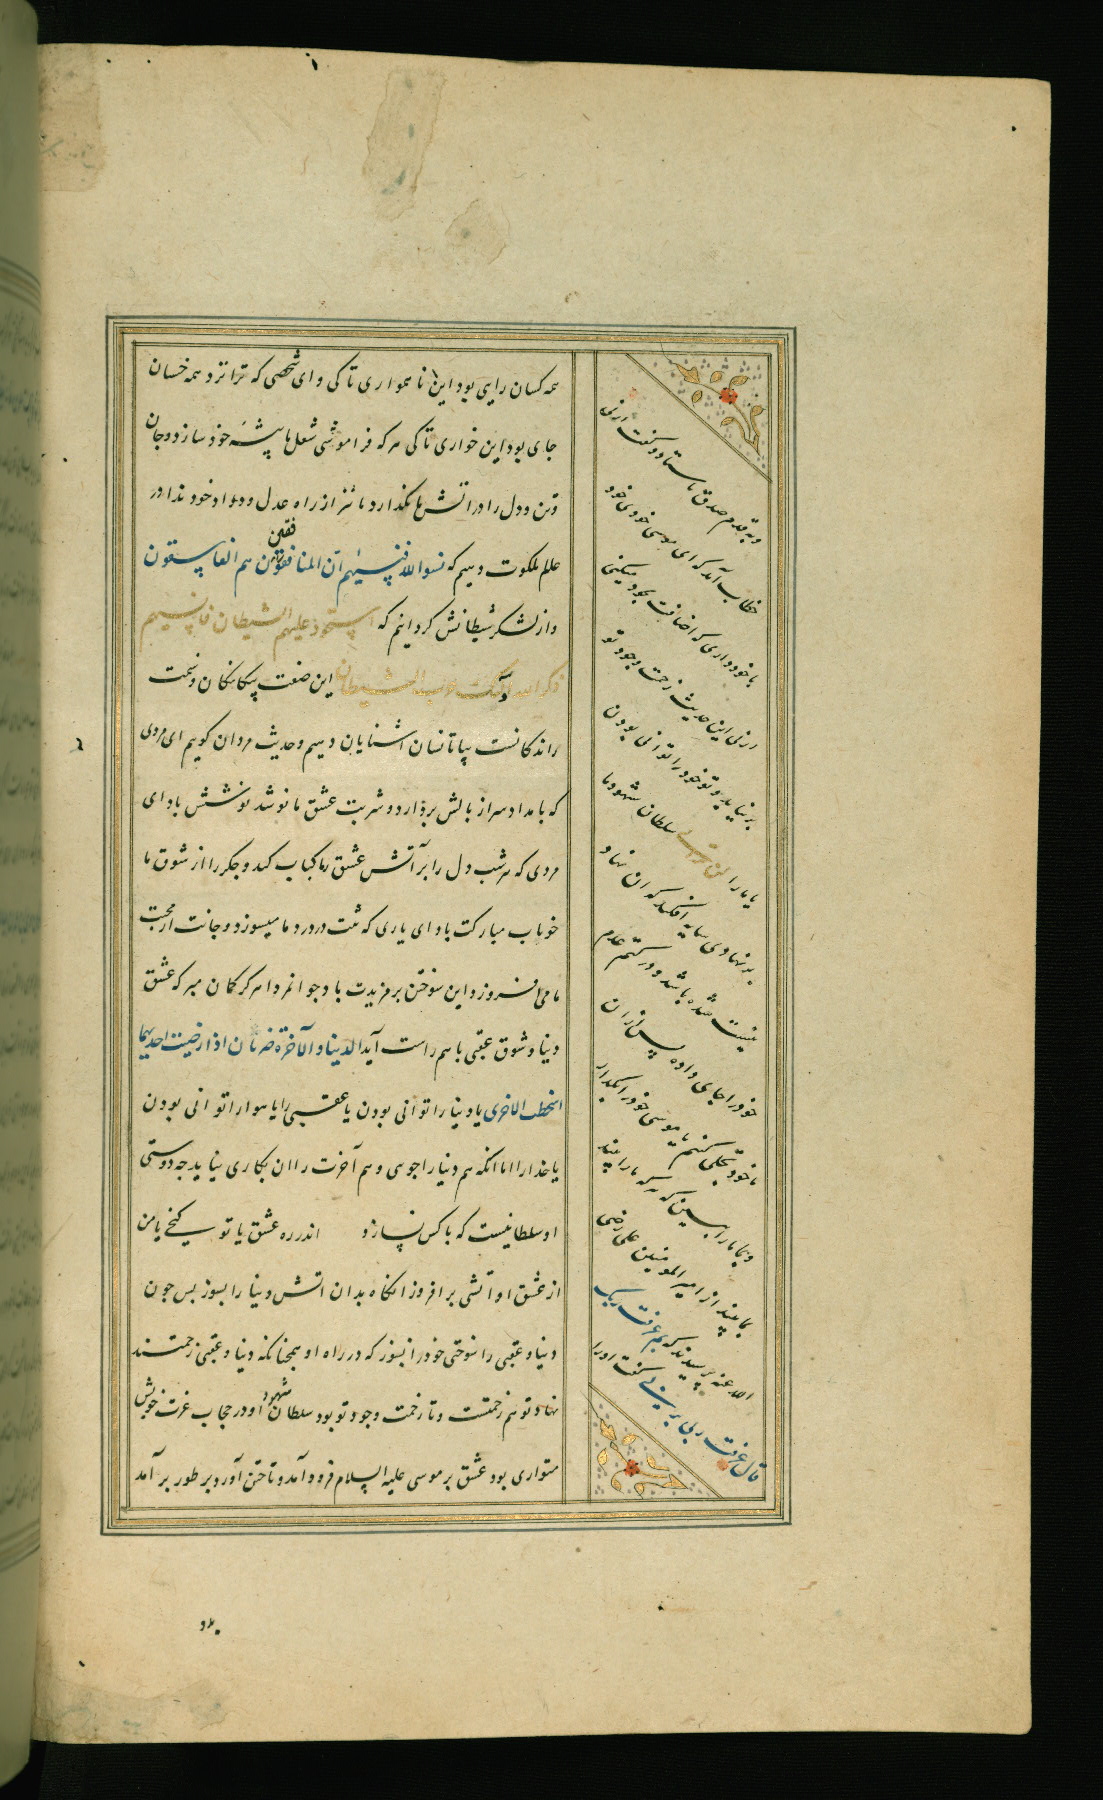 همه کسان رایی بود این نا همواری تا کی و ای شخصی که ترا نزد همه خسان
جای بود این خواری تا کی هر که فراموشی شغل ما پیشه خود سازد و جان
و تن و دل را در اتش ما نگذارد ما نیز از راه عدل و داد خود ندا در
عالم ملکوت دهیم که نسوا الله فنسیهم ان المنافقین هم الفاسقون
و از لشکر شیطانش کردانیم که استحوذ علیهم الشیطان فانسیهم
ذکر الله اولئک حزب الشیطان این صفت بیکانکان و سمت
راندکانست بیا تا نشان اشنایان دهیم و حدیث مردان کوییم ای مردی
که بامداد سر از بالش بردارد و شربت عشق ما نوشد نوشش باد ای
مردی که هر شب دل را بر آتش عشق ما کباب کند و جکر را از شوق ما
خوناب مبارکت باد ای یاری که تنت در درد ما میسوزد و جانت از محبت
ما می افروزد این سوختن بر مزیدت باد جوانمردا هرکز کمان مبر که عشق
دنیا و شوق عقبی با هم راست آید الدنیا و الآخرة ضرتان اذا رضیت احدیهما
اسخطت الاخری یا دنیا را توانی بودن یا عقبی را یا هوا را توانی بودن
یا خدا را اما انکه هم دنیا را جوی و هم آخرت را ان بکاری نیاید جه دوستی
او سلطانیست که با کس نسازد اندر ره عشق یا تو کنجی یا من
از عشق او آتشی بر افروز انکاه بدان اتش دنیا را بسوز بس جون
دنیا و عقبی را سوختی خود را بسوز که در راه او همجنانکه دنیا و عقبی زحمتند
نهاد تو هم زحمتست و تا زحمت وجود تو بود سلطان شهود او در حجاب عزت خویش
متواری بود عشق بر موسی علیه السلام فرود آمد و تاختن آورد بر طور بر آمد
و بقدم صدق باستاد و کفت ارنی
خطاب آمد که ای موسی خودی خود
با خود داری که اضافت بخود میکنی
ارنی این حدیث زحمت وجود تو
بر نیاید یا تو خود را توانی بودن
یا ما را لن ترانی سلطان شهود ما
بر نهادی سایه افکند که ان نهاد
نیست شده باشد و در کتم عدم
خود را جای داده پس از ان
ما خود تجلی کنیم یا موسی خود را بکذار
و بما ما را ببین که هر که ما را بیند
بما بیند از امیر المومنین علی رضی
الله عنه پرسیدند که بم عرفت ربک
قال عرفت ربی بربی کفت او را